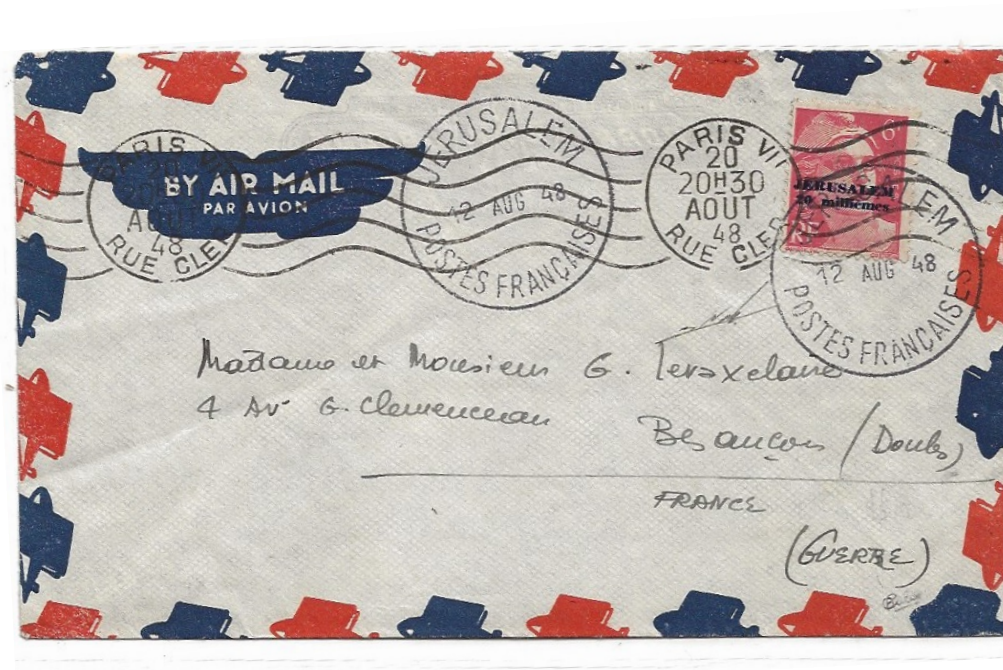 PARIS VII
20
AOUT
48
RUE CLER
BY AIR MAIL
PAR AVION
JERUSALEM
12 AUG 48
POSTES FRANÇAISES
PARIS VII
20
20H30
AOUT
48
RUE CLER
6F
JERUSALEM
20 millièmes
JERUSALEM
12 AUG 48
POSTES FRANÇAISES
Madame et Monsieur G.
4 Av G. Clemenceau
Besançon (Doubs)
FRANCE
(GUERRE)